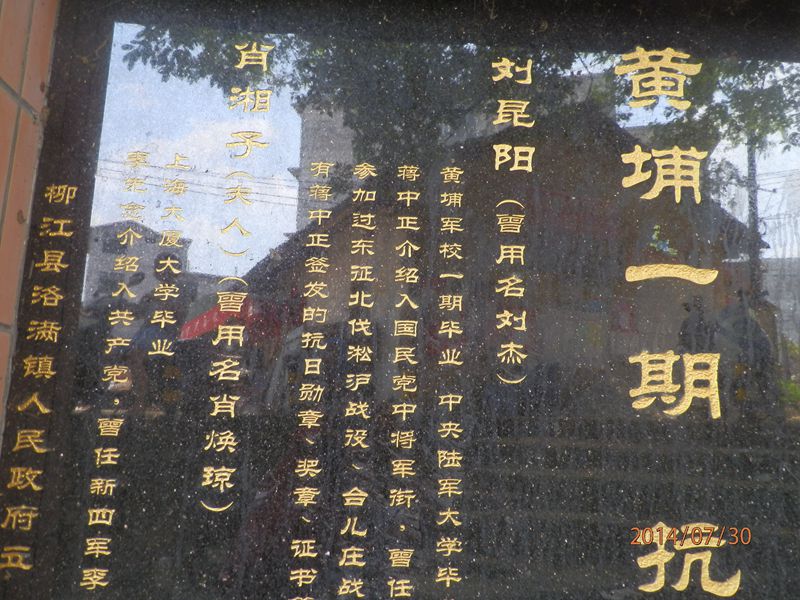 黄埔一期抗
刘昆阳（曾用名刘杰）
黄埔军校一期毕业 中央陆军大学毕
蒋中正介绍入国民党中将军衔，曾任
参加过东征北伐淞沪战役、台儿庄战
有蒋中正签发的抗日勋章、奖章、证书
肖湘子（夫人）（曾用名肖焕琼）
上海大厦大学毕业
介绍入共产党，曾任新四军李
柳江县洛满镇人民政府立
2014/07/30